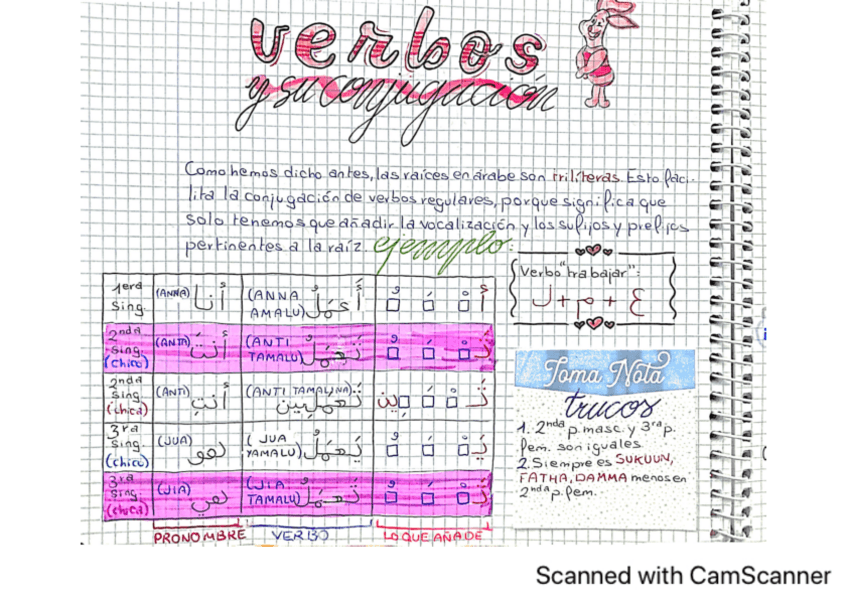 verbos
y su conjugación
Como hemos dicho antes, las raíces en árabe son trilíteras. Esto faci-
lita la conjugación de verbos regulares, porque significa que
solo tenemos que añadir la vocalización y los sufijos y prefijos
pertinentes a la raíz. ejemplo:
Verbo "trabajar":
ع + م + ل
1era
Sing.
(ANNA) أنا
(ANNA
AMALU) أَعْمَلُ
أ
2nda
sing.
(chico)
(ANTA) أنتَ
(ANTI
TAMALU) تَعْمَلُ
تَ
2nda
sing.
(chica)
(ANTI) أنتِ
(ANTI TAMALINA)
تَعْمَلِينَ
تَ ينَ
3ra
Sing.
(chico)
(JUA) هو
(JUA
YAMALU) يَعْمَلُ
يَ
3ra
Sing.
(chica)
(JIA) هي
(JIA
TAMALU) تَعْمَلُ
تَ
PRONOMBRE VERBO LO QUE AÑADE
Toma Nota
trucos
1. 2nda p. masc. y 3ra p.
fem. son iguales
2. Siempre es SUKUUN,
FATHA, DAMMA menos en
2nda p. fem.
Scanned with CamScanner